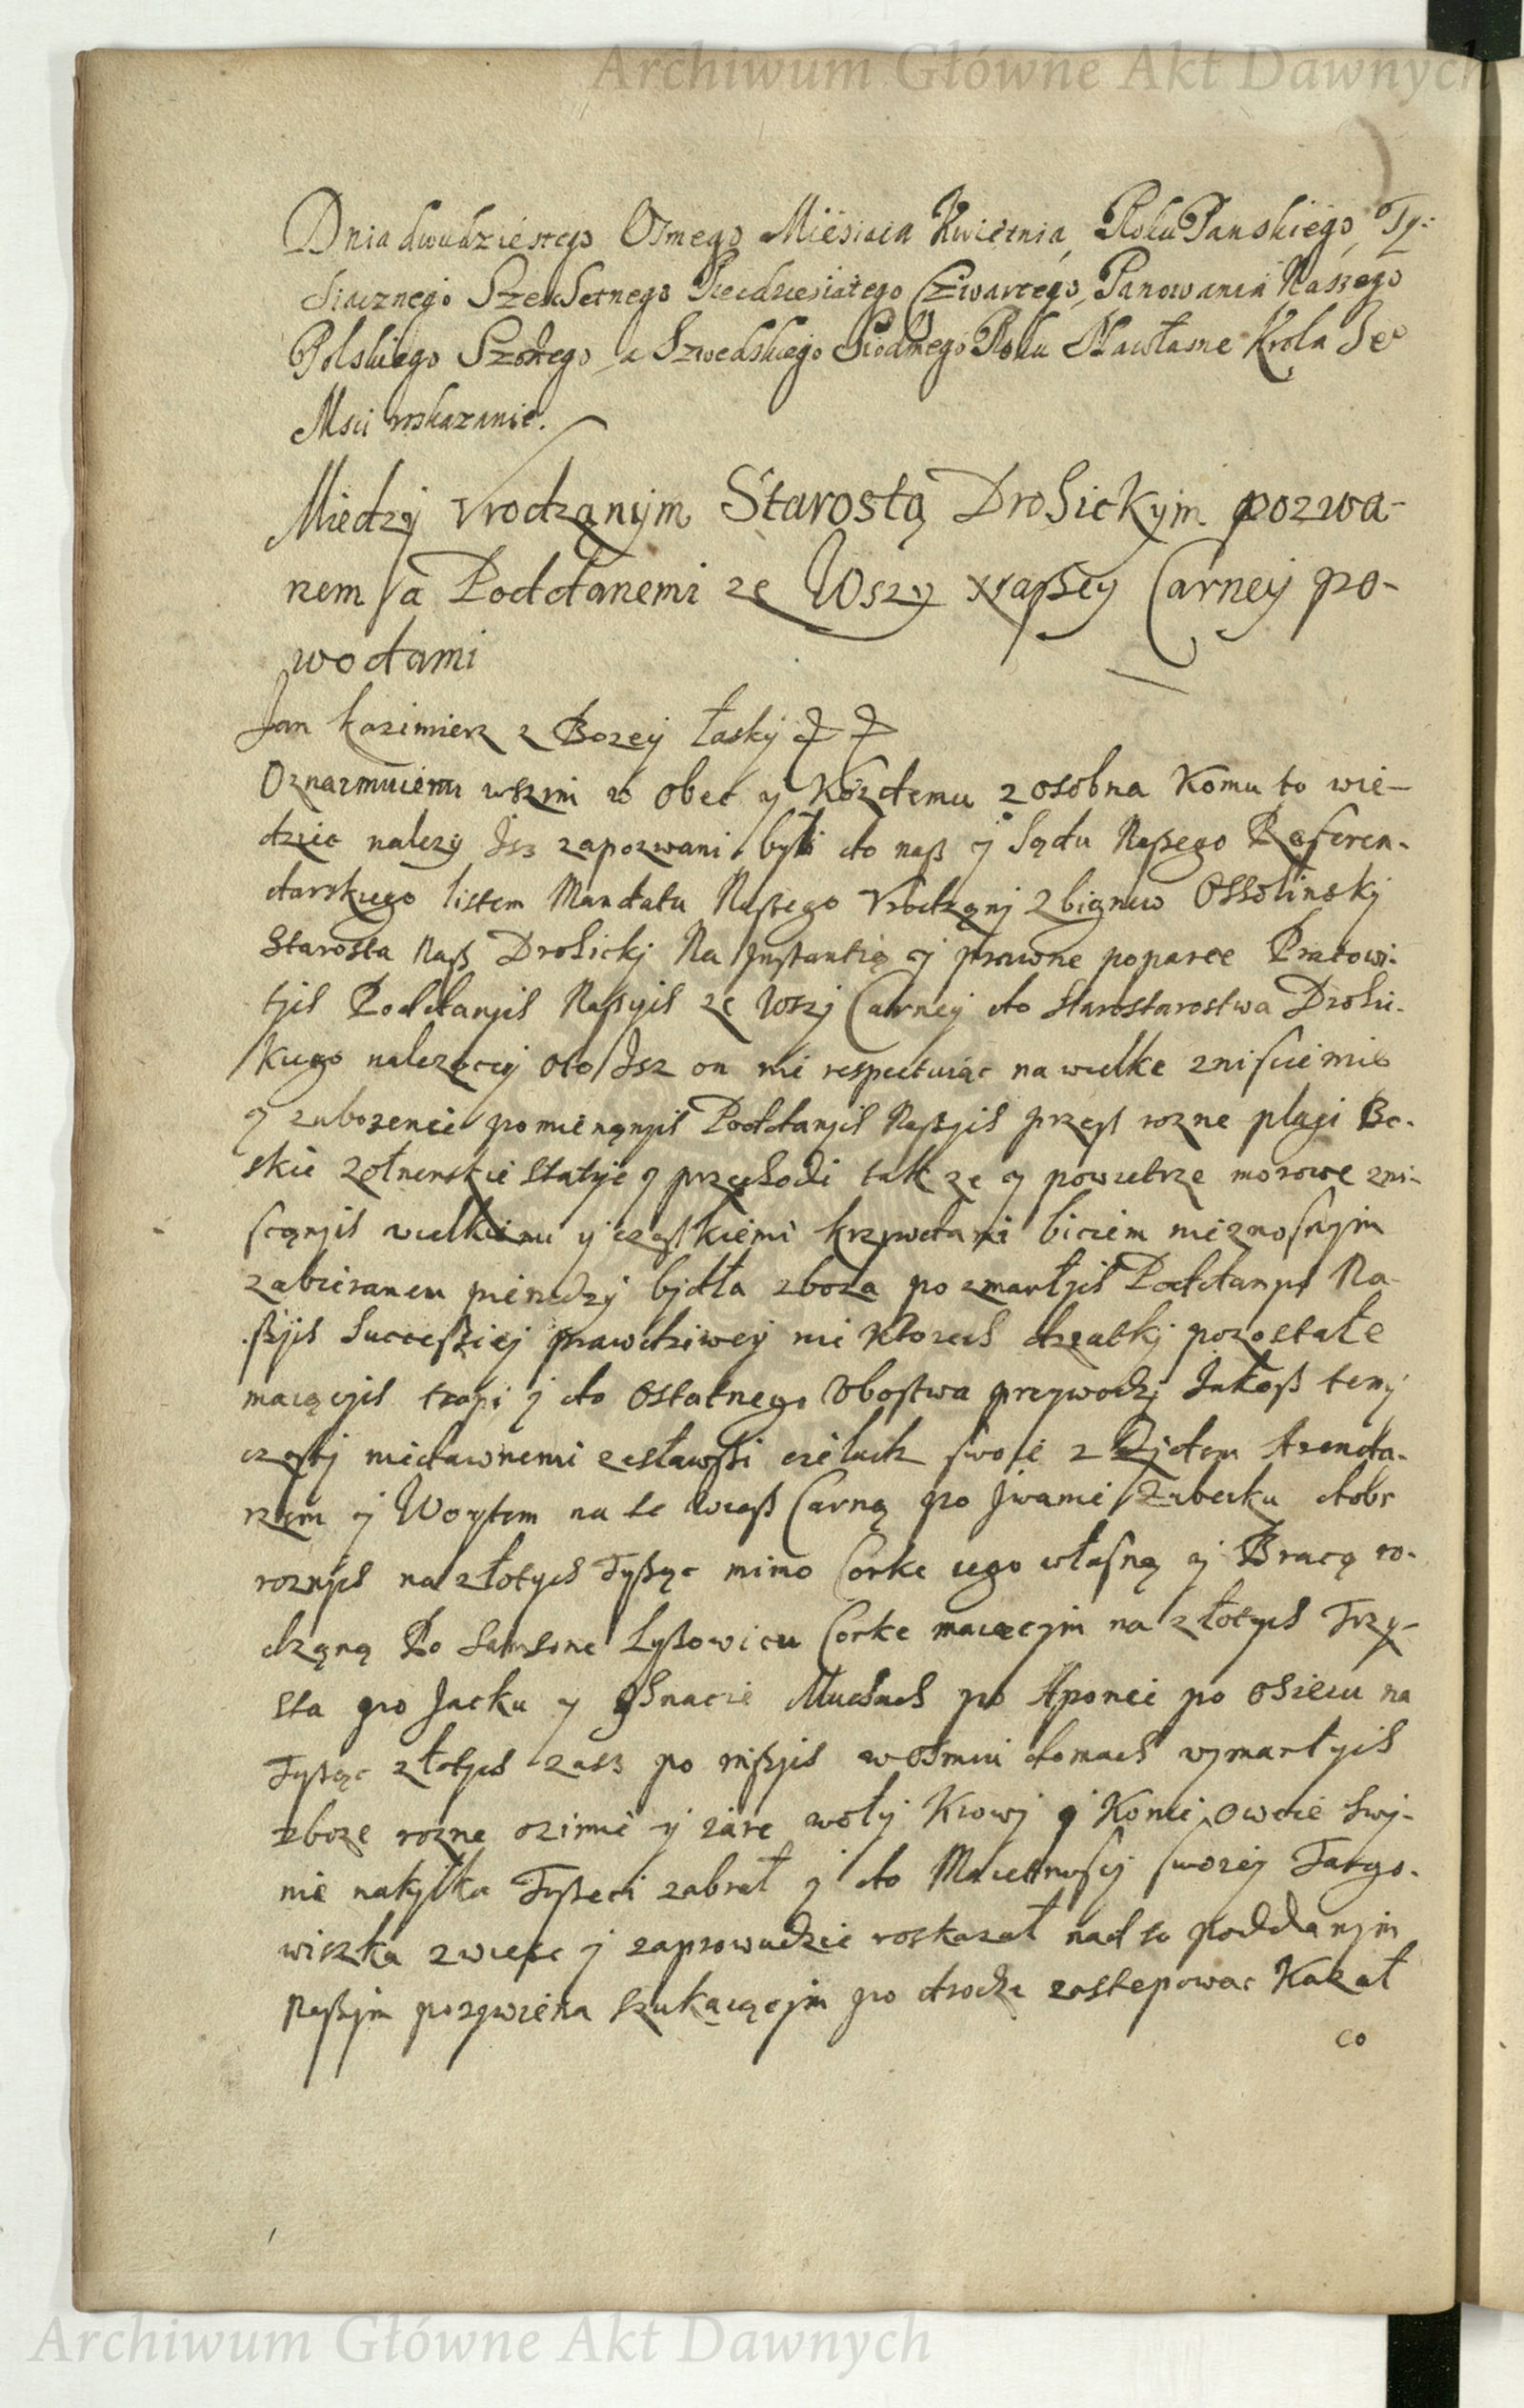 Archiwum Główne Akt Dawnych
Dnia dwudziestego Osmego Miesiaca Kwietnia, Roku Panskiego, Ty:
siacznego Szescsetnego Piecdziesiatego Czwartego, Panowania Naszego
Polskiego Szostego, a Szwedskiego Siodmego Roku Nawłasne Krola Je°
Msci roskazanie.
Miedzy Vrodząnym Starostą Drohickym pozwa-
nem / a Poddanemi ze Wszy naßey Carney po-
wodami
Jan Kazimierz z Bozey łasky
Oznaimuiemi wszem w obec y Kozdemu z osobna Komu to wie-
dziec nalezy Isz zapozwani byłi do naß y Sądu Naßego Referen-
darskiego listem Mandatu Naßego Vrodząny Zbigniew Ossolinsky
Starosta Naß Drohicky Na Instantią y prawne poparce Pracowi-
tych Poddanych Naßych ze Wszy Carney do Starostarostwa Drohi-
kiego nalezącey Oto / Isz on nie respectuiąc na wielke zniscienie
y zubozenie pomienąnych Poddanych Naßych przez rozne plagi Bo-
skie zołnerskie Statyie y przechodi tak ze y powietrze morowe zni-
scąnych wielkiemi y częskiemi krzywdami biciem nieznosnym
zabieraniem pieniedzy bydła zboza po zmarłych Poddanych Na-
ßych Successiey prawdziwey nie Ktorech dzeatky pozostałe
maiących trapi y do Ostatnego Vbostwa przywodzy Jakoß temy
czasy niedawnemi zesławßi czeladz swoie z Zydem Arenda-
rzem y Woytem na te wieß Carną po Iwanie Zubecku dobr
roznych na złotych Tyßąc mimo Corke iego własną y Bracą ro-
dząną Po Samsone Lyßowicu Corke maiącym na złotych Trzy-
sta po Jacku y Ihnacie Muchach po Aponie po Osieiu na
Tyßąc złotych zasz po inßych w Osmiu domach vymarłych
zboze rozne ozimie y iare woły Krowy y Konie, Owcie Swy-
nie nakylka Tyßeci zabrał y do Maietnoscy swoiey Targo-
wiszka zwiesc y zaprowadzic roskazał nad to poddanym
Naßym pozywiena szukaiącym po drodze zastepowac Kazał
co
Archiwum Główne Akt Dawnych